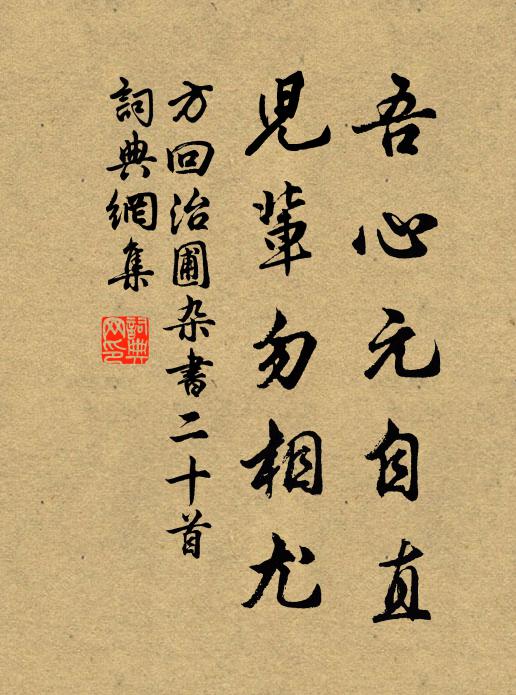 吾心元自直
児輩勿相尤
方回治圃杂書二十首
詞典網集
詞典
网印